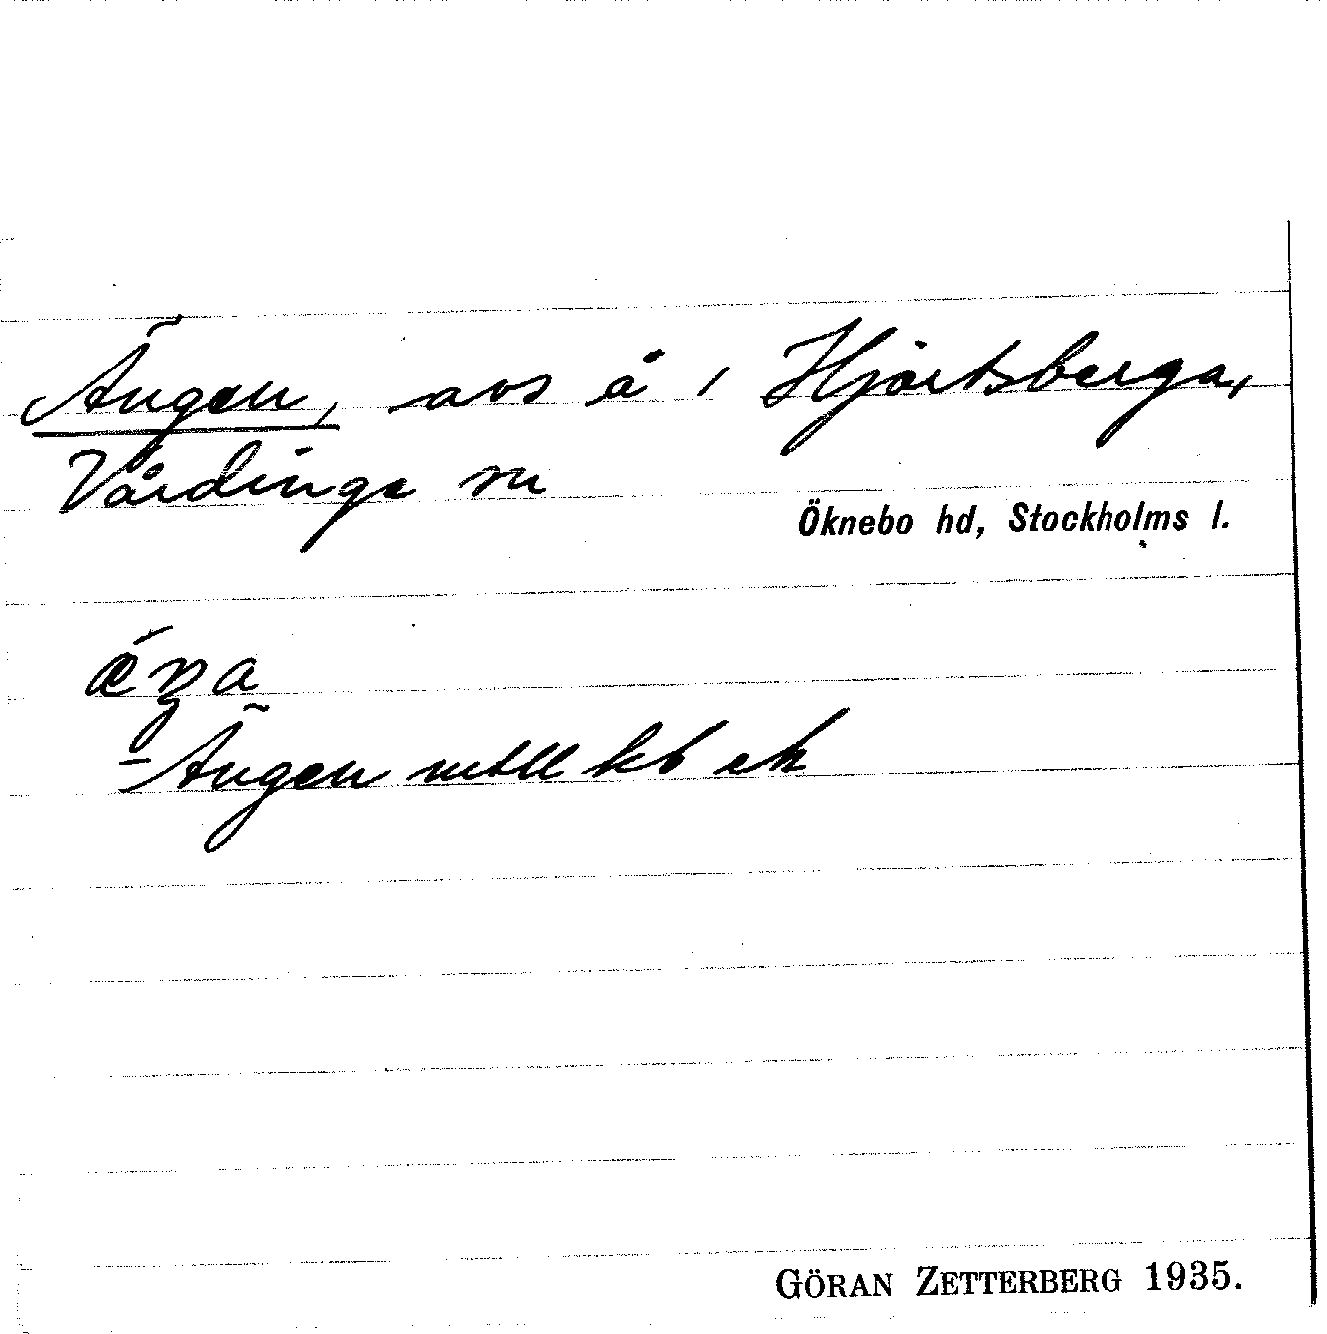 Ängen, avs å i Hjortsberga,
Vårdinge sn
Öknebo hd, Stockholms l.
äŋa
- Ängen mtll kb ek
GÖRAN ZETTERBERG 1935.